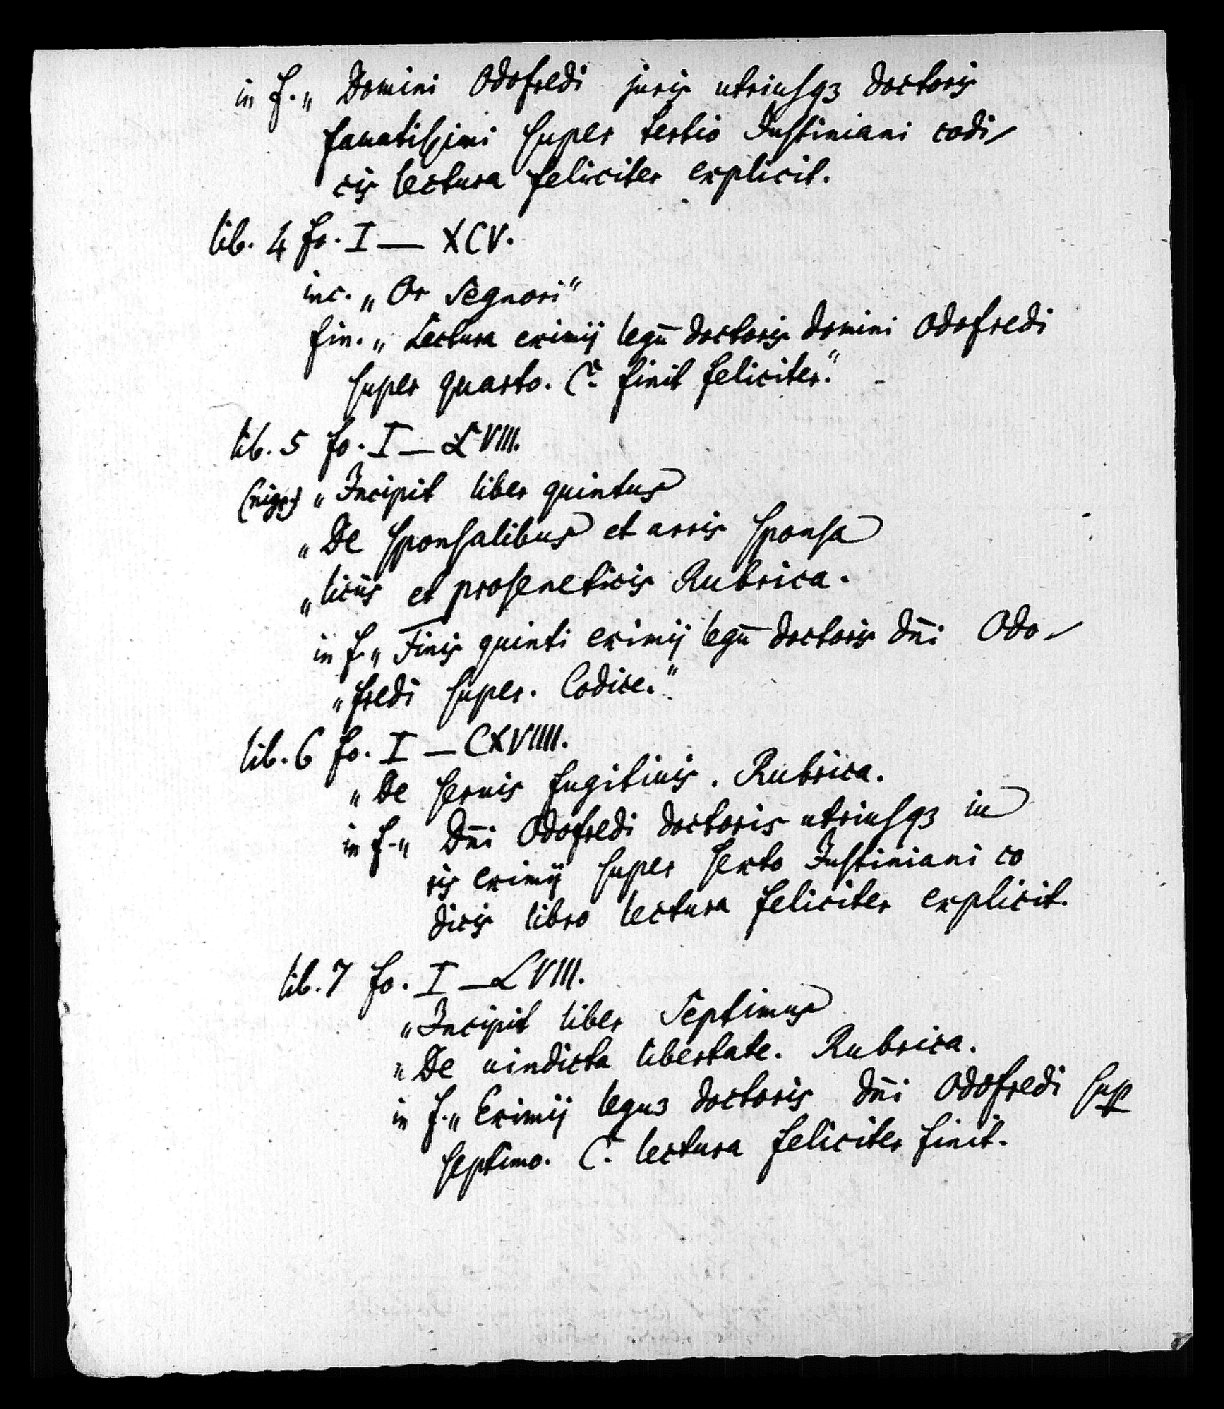 in f. „ Domini Odofredi juris utriusqʒ doctoris
famatissimi super tertio Justiniani codi-
cis lectura feliciter explicit.
lib. 4 fo. I — XCV.
inc. „Or Segnori“
fin. „ Lectura eximij legū doctoris domini Odofredi
super quarto. C. finit feliciter.“
lib. 5 fo. I — LVIII.
„Incipit liber quintus
„De sponsalibus et arris sponsa
„liciis et proseneticis Rubrica.
in f. „ Finis quinti eximij legū doctoris dn̄i Odo-
„fredi super. Codice.“
lib. 6 fo. I — CXVIIII.
„De seruis fugitiuis. Rubrica.
in f. „ Dn̄i Odofredi doctoris utriusqʒ iu
ris eximij super sexto Justiniani co
dicis libro lectura feliciter explicit.
lib. 7 fo. I — LVIII.
„Incipit liber Septimus
„De uindicta libertate. Rubrica.
in f. „ Eximij leguʒ doctoris dn̄i Odofredi sup̱
septimo. C. lectura feliciter finit.